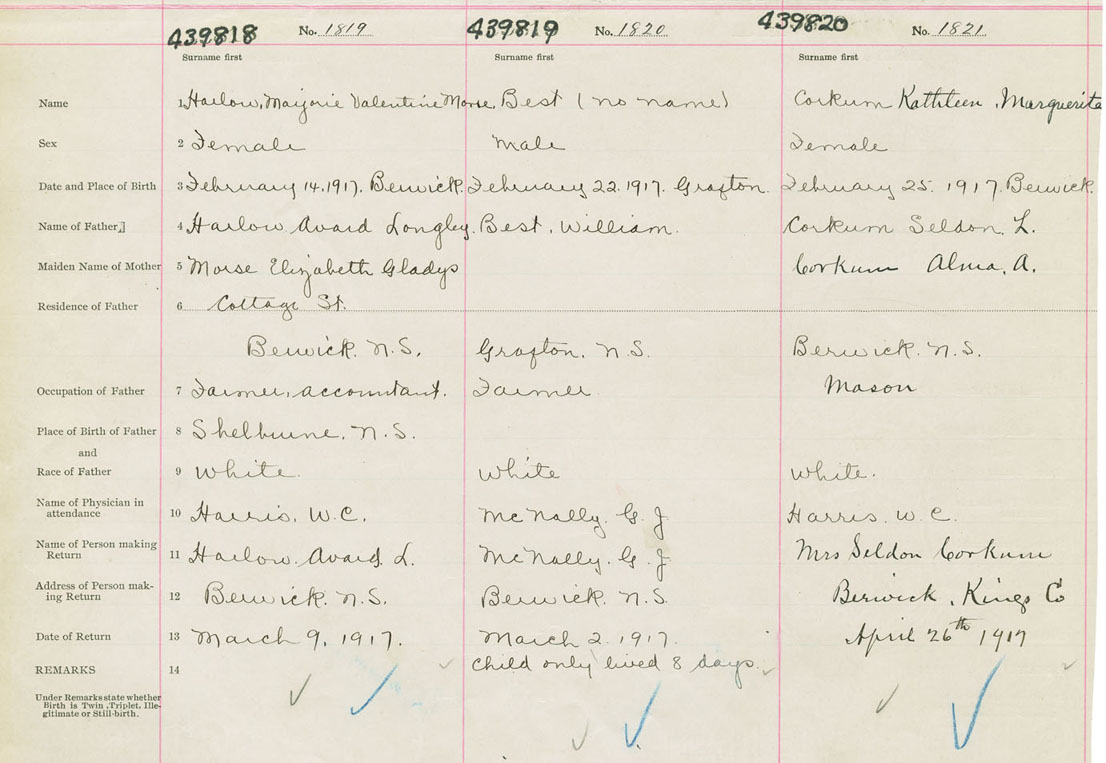 439818 No. 1819 439819 No. 1820 439820 No. 1821
Surname first Surname first Surname first
Name 1 Harlow, Marjorie Valentine Morse, Best (no name) Corkum Kathleen, Marguerita
Sex 2 Female Male Female
Date and Place of Birth 3 February 14, 1917, Berwick. February 22, 1917. Grafton. February 25. 1917. Berwick.
Name of Father,] 4 Harlow Avard Longley. Best, William. Corkum Seldon. L.
Maiden Name of Mother 5 Morse Elizabeth Gladys Corkum Alma, A.
Residence of Father 6 Cottage St.
Berwick. N.S. Grafton, N.S. Berwick. N.S.
Occupation of Father 7 Farmer, accountant. Farmer. Mason
Place of Birth of Father 8 Shelburne, N.S.
and
Race of Father 9 White. White White.
Name of Physician in
attendance 10 Harris, W.C. McNally. G. J Harris. W. C.
Name of Person making
Return 11 Harlow. Avard. L. McNally. G. J Mrs Seldon Corkum
Address of Person mak-
ing Return 12 Berwick. N.S. Berwick. N.S. Berwick, Kings Co
Date of Return 13 March 9, 1917. March 2. 1917. April 26th 1917
REMARKS 14 Child only lived 8 days.
Under Remarks state whether
Birth is Twin, Triplet, Ille-
gitimate or Still-birth.